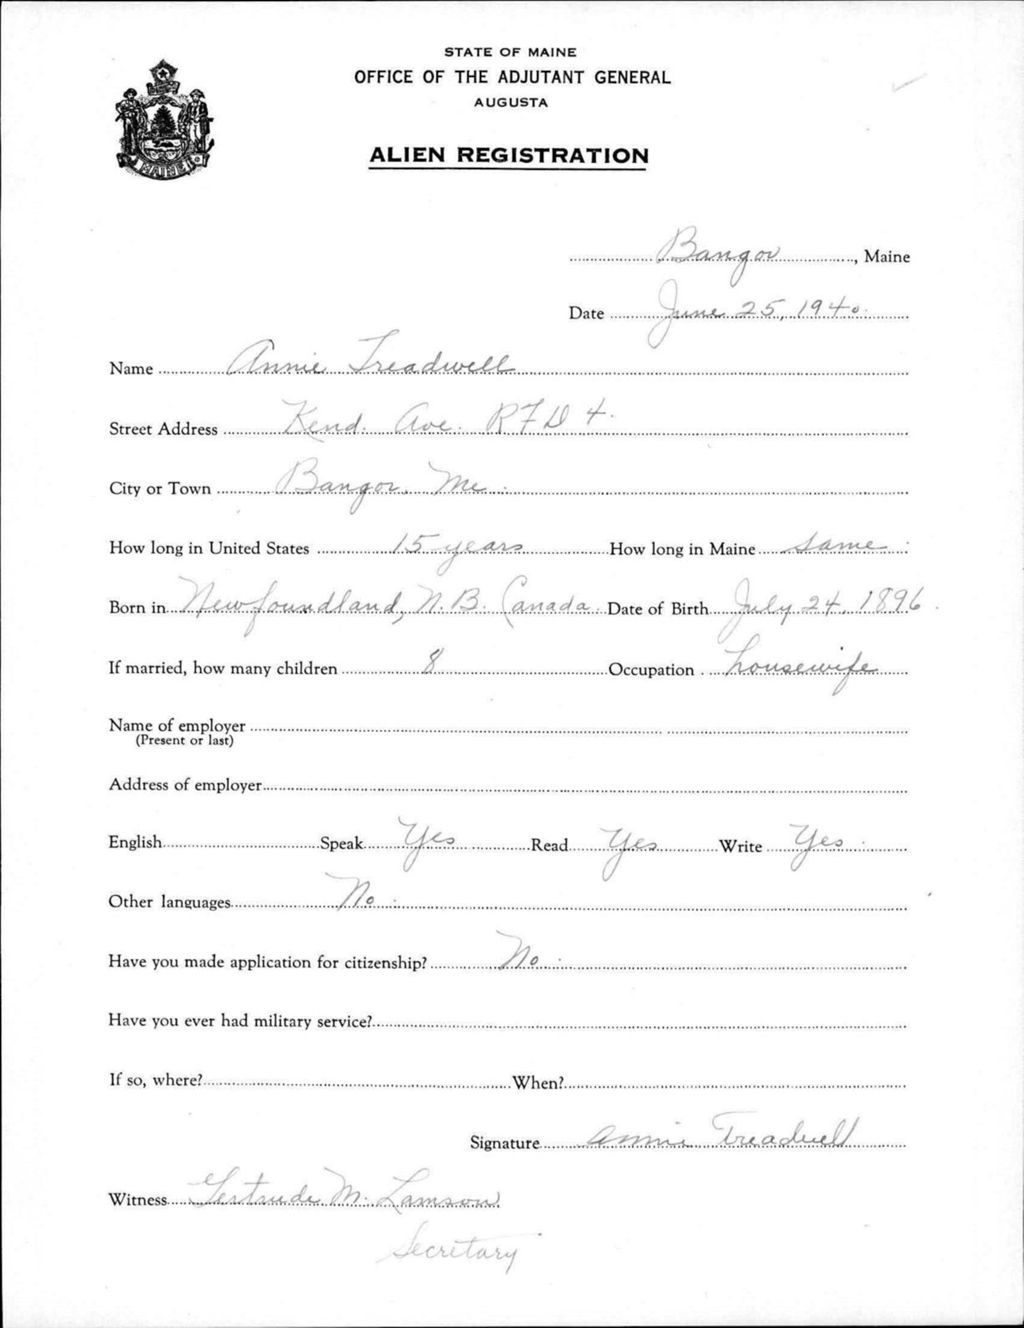 STATE OF MAINE
OFFICE OF THE ADJUTANT GENERAL
AUGUSTA
ALIEN REGISTRATION
MAINE
Bangor, Maine
Date June 25, 1940.
Name Annie Treadwell
Street Address Kend. Ave. RFD 4.
City or Town Bangor, Me.
How long in United States 15 years How long in Maine same.
Born in Newfoundland, N.B. Canada. Date of Birth July 24, 1896.
If married, how many children 8 Occupation housewife
Name of employer
(Present or last)
Address of employer
English Speak Yes Read Yes Write Yes.
Other languages No.
Have you made application for citizenship? No.
Have you ever had military service?
If so, where? When?
Signature Annie Treadwell
Witness Gertrude M. Lamson
Secretary